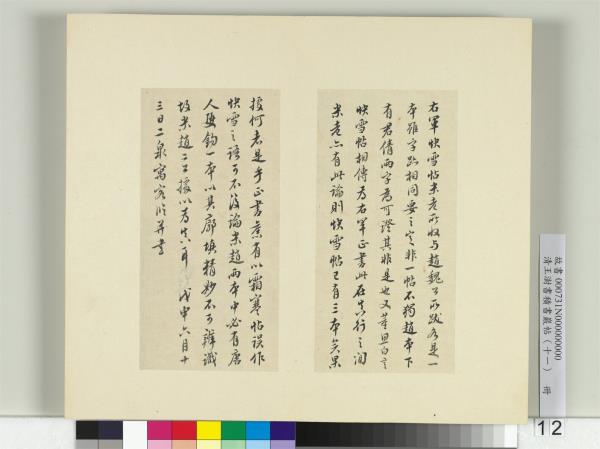 右軍快雪帖米老所收与趙魏公所跋各是一
本雖字跡相同要之定非一帖不獨趙本下
有君倩兩字為可證其非是也又董思白言
快雪帖相傳為右軍正書此在真行之間
米老亦有此論則快雪帖已有三本矣果
據何者是乎正書豈有以霜寒帖誤作
快雪之語可不深論米趙兩本中必有唐
人雙鉤一本以其廓填精妙不可辨識
故米趙二公據以為真耳 戊申六月十
三日二泉寓客臨并書
故書000731N000000000
清王澍書積書巖帖(十一) 冊
12